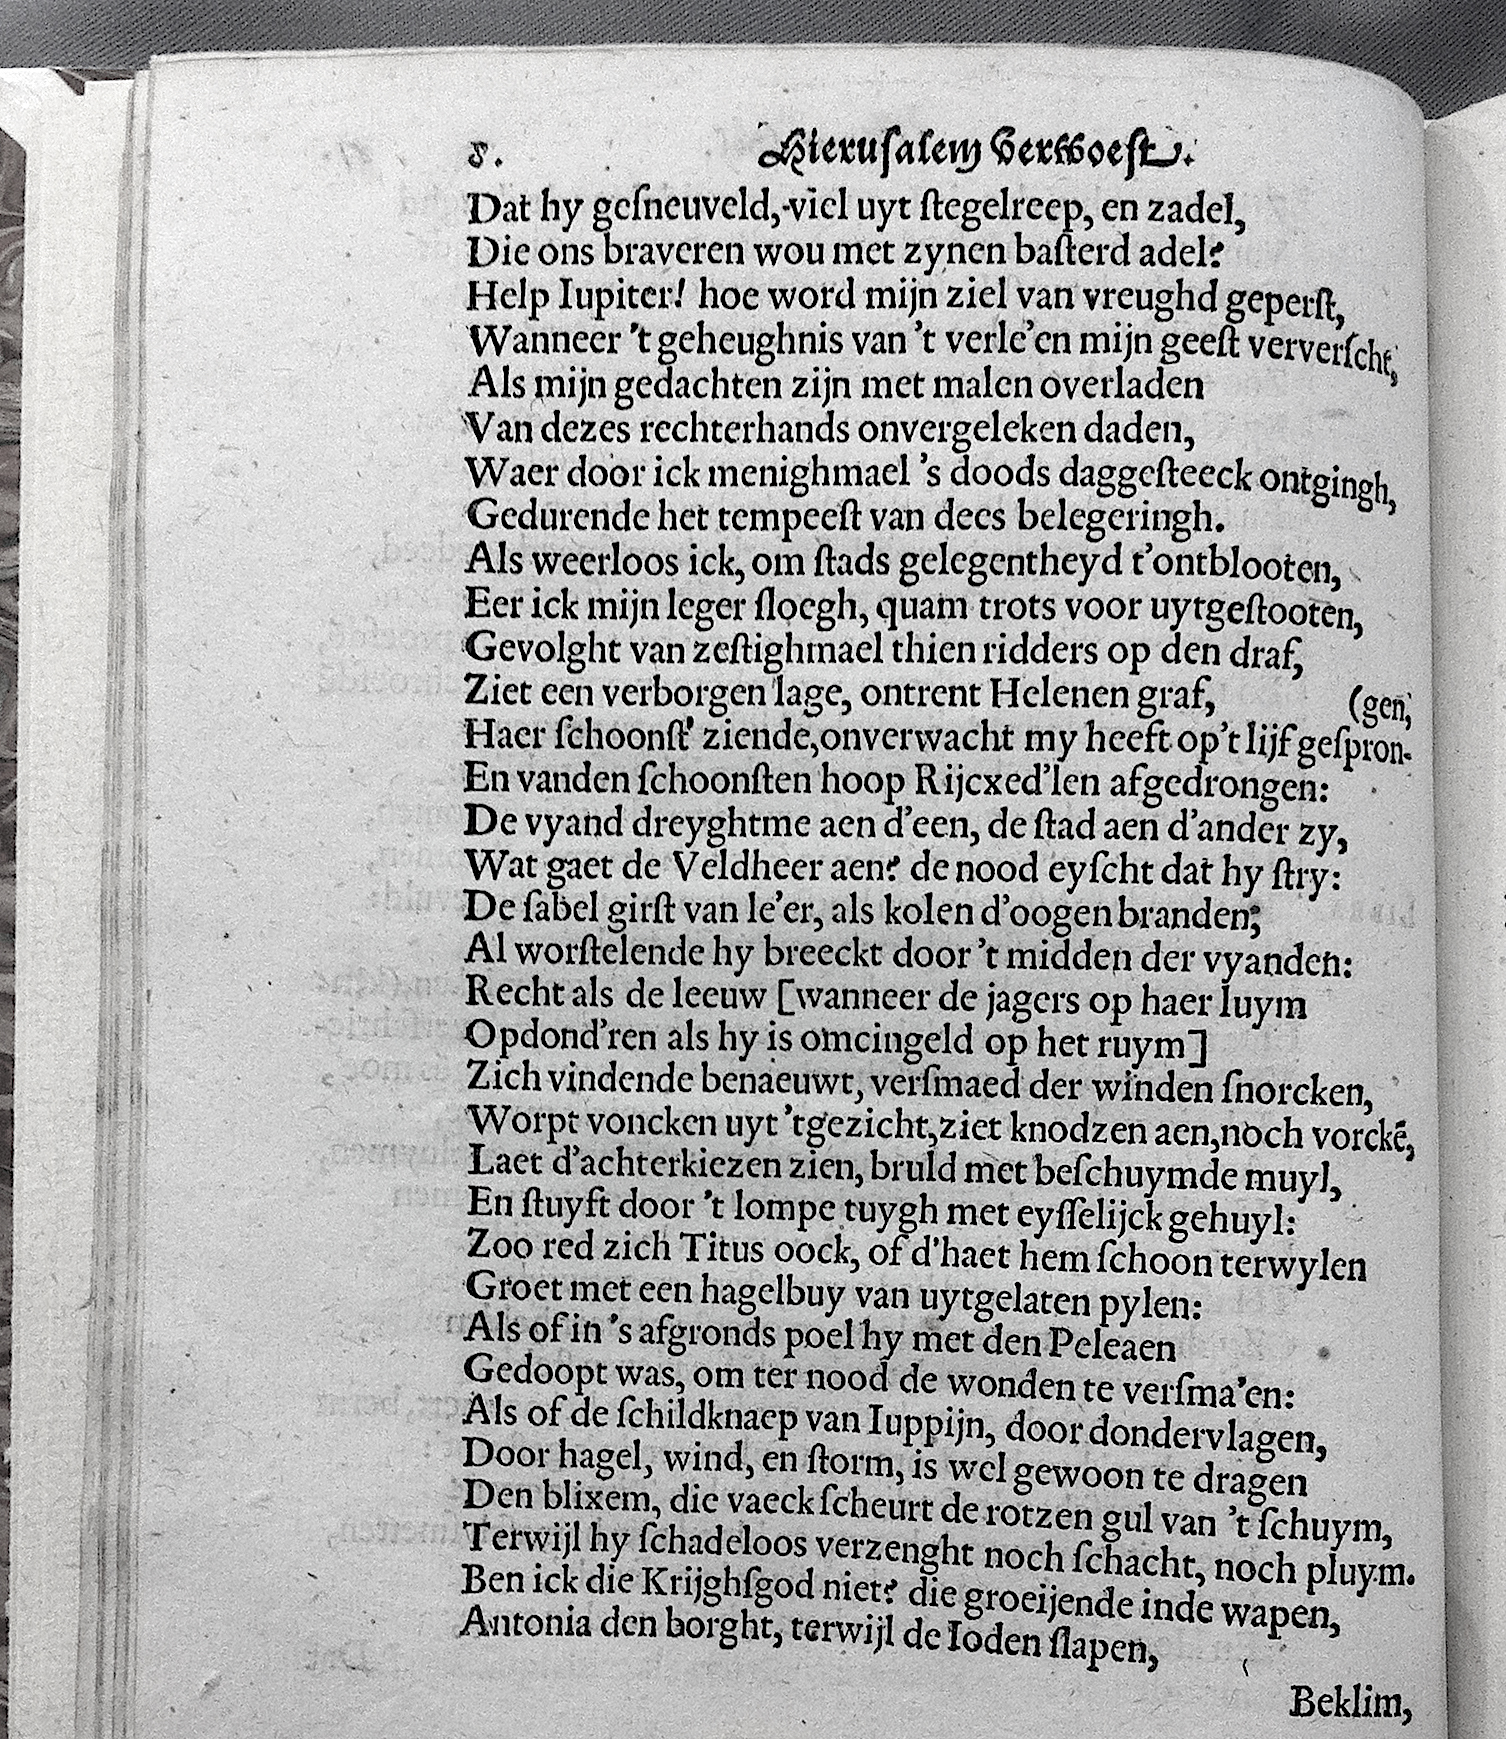 8. Hierusalem Verwoest.
Dat hy gesneuveld, viel uyt stegelreep, en zadel,
Die ons braveren wou met zynen basterd adel?
Help Iupiter! hoe word mijn ziel van vreughd geperst,
Wanneer 't geheughnis van 't verle'en mijn geest ververscht,
Als mijn gedachten zijn met malen overladen
Van dezes rechterhands onvergeleken daden,
Waer door ick menighmael 's doods daggesteeck ontgingh,
Gedurende het tempeest van dees belegeringh.
Als weerloos ick, om stads gelegentheyd t'ontblooten,
Eer ick mijn leger sloegh, quam trots voor uytgestooten,
Gevolght van zestighmael thien ridders op den draf,
Ziet een verborgen lage, ontrent Helenen graf, (gen,
Haer schoonst' ziende, onverwacht my heeft op't lijf gespron-
En vanden schoonsten hoop Rijcxed'len afgedrongen:
De vyand dreyghtme aen d'een, de stad aen d'ander zy,
Wat gaet de Veldheer aen? de nood eyscht dat hy stry:
De sabel girst van le'er, als kolen d'oogen branden;
Al worstelende hy breeckt door 't midden der vyanden:
Recht als de leeuw [wanneer de jagers op haer luym
Opdond'ren als hy is omcingeld op het ruym]
Zich vindende benaeuwt, versmaed der winden snorcken,
Worpt voncken uyt 'tgezicht, ziet knodzen aen, noch vorckē,
Laet d'achterkiezen zien, bruld met beschuymde muyl,
En stuyft door 't lompe tuygh met eysselijck gehuyl:
Zoo red zich Titus oock, of d'haet hem schoon terwylen
Groet met een hagelbuy van uytgelaten pylen:
Als of in 's afgronds poel hy met den Peleaen
Gedoopt was, om ter nood de wonden te versma'en:
Als of de schildknaep van Iuppijn, door dondervlagen,
Door hagel, wind, en storm, is wel gewoon te dragen
Den blixem, die vaeck scheurt de rotzen gul van 't schuym,
Terwijl hy schadeloos verzenght noch schacht, noch pluym.
Ben ick die Krijghsgod niet? die groeijende inde wapen,
Antonia den borght, terwijl de Ioden slapen,
Beklim,